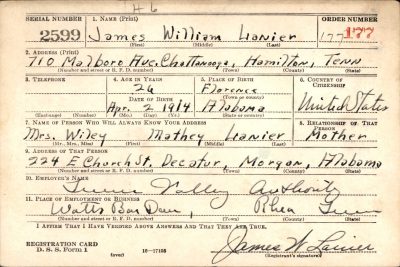 H 6
SERIAL NUMBER 1. NAME (Print) ORDER NUMBER
2599 James William Lanier 177 177
(First) (Middle) (Last)
2. ADDRESS (Print)
710 Marlboro Ave. Chattanooga, Hamilton, Tenn
(Number and street or R. F. D. number) (Town) (County) (State)
3. TELEPHONE 4. AGE IN YEARS 5. PLACE OF BIRTH 6. COUNTRY OF CITIZENSHIP
26 Florence
(Town or county)
DATE OF BIRTH
Apr. 2 1914 Alabama United States
(Exchange) (Number) (Mo.) (Day) (Yr.) (State or country)
7. NAME OF PERSON WHO WILL ALWAYS KNOW YOUR ADDRESS 8. RELATIONSHIP OF THAT PERSON
Mrs. Wiley Mathey Lanier Mother
(Mr., Mrs., Miss) (First) (Middle) (Last)
9. ADDRESS OF THAT PERSON
224 E Church St. Decatur, Morgan, Alabama
(Number and street or R. F. D. number) (Town) (County) (State)
10. EMPLOYER'S NAME
Tenn Valley Authority
11. PLACE OF EMPLOYMENT OR BUSINESS
Watts Bar Dam, Rhea Tenn
(Number and street or R. F. D. number) (Town) (County) (State)
I AFFIRM THAT I HAVE VERIFIED ABOVE ANSWERS AND THAT THEY ARE TRUE.
REGISTRATION CARD
D. S. S. Form 1 (over) 16—17105 James W Lanier
(Registrant's signature)